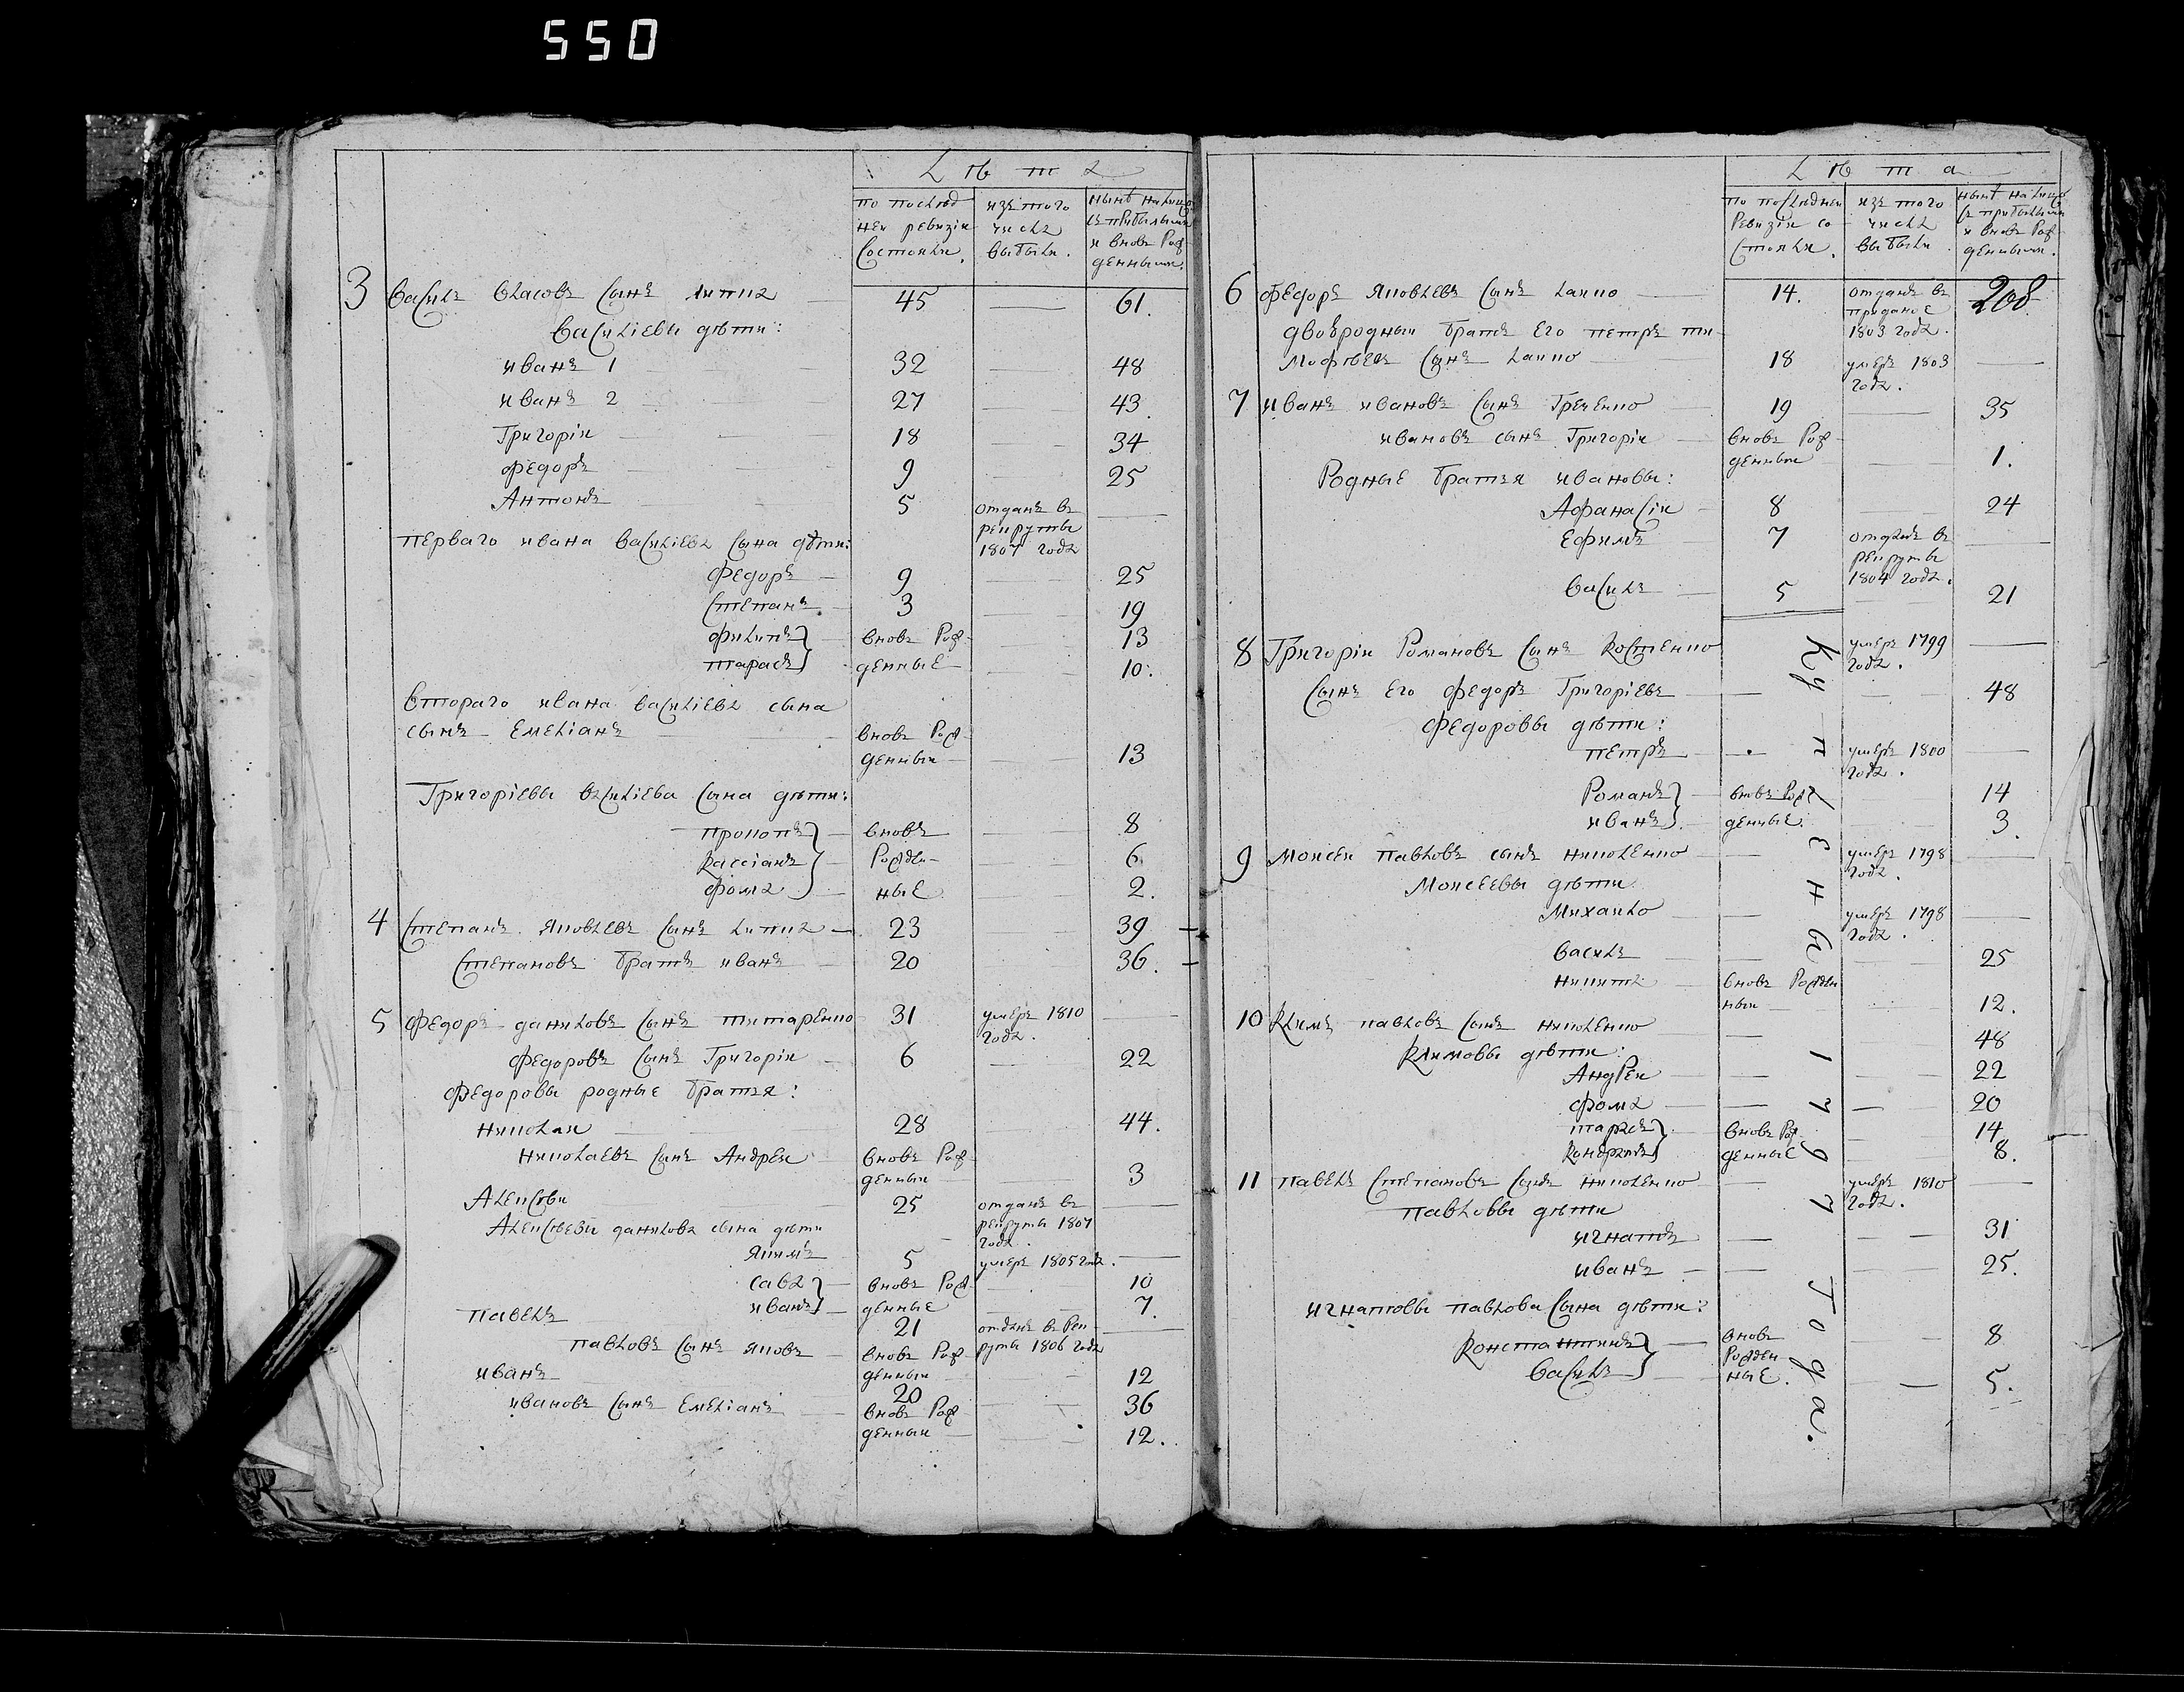 550
Лѣта
по послѣд
ней ревизіи
состояли.
изъ того
числа
выбыли.
нынѣ на лицо
съ прибылыми
и вновь рож
денными.
3 Василь Власовъ сынъ Липка 45 — 61.
Васильевы дѣти:
Иванъ 1 32 — 48
Иванъ 2 27 — 43.
Григорій 18 — 34
Федоръ 9 — 25
Антонъ 5 отданъ въ —
рекруты
перваго Ивана Васильева сына дѣти: 1807 года
Федоръ 9 — 25
Степанъ 3 — 19
Филипъ вновь рож — 13
Тарасъ денные — 10.
втораго Ивана Васильева сына
сынъ Емеліанъ вновь рож
денный — 13
Григоріевы Васильева сына дѣти:
Прокопъ вновь — 8
Кассіанъ рожден — 6
Фома ные 2.
4 Степанъ Яковлевъ сынъ Липка — 23 — 39
Степановъ братъ Иванъ 20 — 36.
5 Федоръ Даниловъ сынъ Титаренко 31 умеръ 1810 —
года.
Федоровъ сынъ Григорій 6 — 22
Федоровы родные братья:
Николай 28 — 44.
Николаевъ сынъ Андрей вновь рож
денный — 3
Алексѣй 25 отданъ въ —
Алексѣевы Данилова сына дѣти рекруты 1807
года.
Якимъ 5 умеръ 1805 года. —
Сава вновь рож — 10
Иванъ денные — 7.
Павелъ 21 отданъ въ рек —
Павловъ сынъ Яковъ вновь рож руты 1806 года
денный — 12
Иванъ 20 — 36
Ивановъ сынъ Емеліанъ вновь рож
денный — 12.
Лѣта
по послѣдней
ревизіи со
стояли.
изъ того
числа
выбыли.
нынѣ на лицо
съ прибылыми
и вновь рож
денными.
6 Федоръ Яковлевъ сынъ Лаппо 14. отданъ въ 208
приданое
двоюродный братъ его Петръ Ти- 1803 года.
мофѣевъ сынъ Лаппо 18 умеръ 1803 —
года.
7 Иванъ Ивановъ сынъ Греченко 19 — 35
Ивановъ сынъ Григорій вновь рож
денный — 1.
Родные братья Ивановы:
Афанасій 8 — 24
Ефимъ 7 отданъ въ —
рекруты
1804 года.
Василь 5 — 21
8 Григорій Романовъ сынъ Костенко умеръ 1799 —
года.
сынъ его Федоръ Григоріевъ — 48
Федоровы дѣти:
Петръ — умеръ 1800 —
года.
Романъ вновь рож — 14
Иванъ денные. — 3.
9 Моисей Павловъ сынъ Николенко — умеръ 1798 —
года.
Моисеевы дѣти
Михайло — умеръ 1798 —
года.
Василь — 25
Никита вновь рожден
ный — 12.
10 Климъ Павловъ сынъ Николенко — 48
Климовы дѣти:
Андрей — 22
Фома — 20
Тарасъ вновь рож — 14
Кондратъ денные — 8.
11 Павелъ Степановъ сынъ Николенко — умеръ 1810 —
года.
Павловы дѣти
Игнатъ — 31
Иванъ — 25.
Игнатовы Павлова сына дѣти:
Константинъ вновь — 8
рожден
Василь ные. — 5.
Купленны 1797 года.